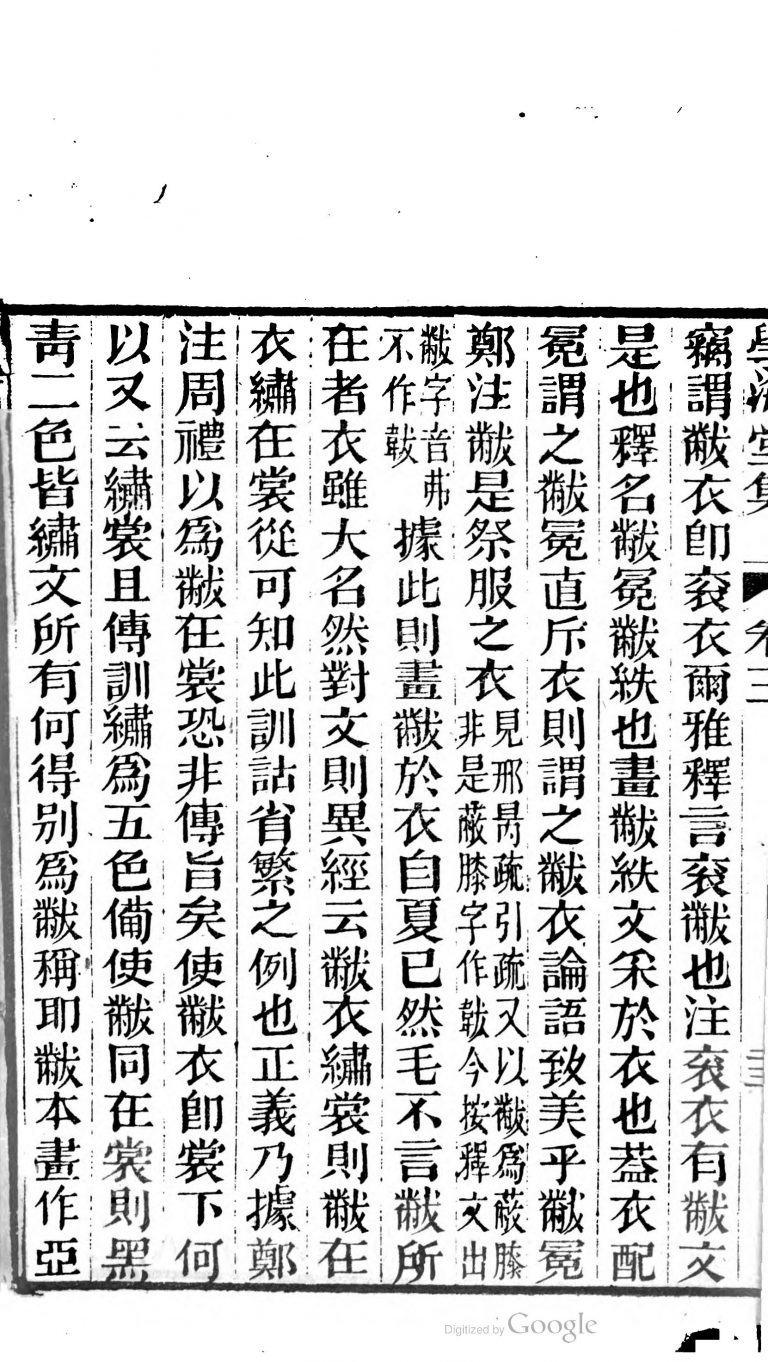 學海堂集 卷三
竊謂黻衣卽衮衣爾雅釋言衮黻也注衮衣有黻文
是也釋名黻冕黻紩也畫黻紩文釆於衣也葢衣配
冕謂之黻冕直斥衣則謂之黻衣論語致美乎黻冕
鄭注黻是祭服之衣見邢昺疏引疏又以黻爲蔽膝非是蔽膝字作韍今按釋文出
黻字音弗不作韍據此則畫黻於衣自夏已然毛不言黻所
在者衣雖大名然對文則異經云黻衣繡裳則黻在
衣繡在裳從可知此訓詁省繁之例也正義乃據鄭
注周禮以爲黻在裳恐非傳旨矣使黻衣卽裳下何
以又云繡裳且傳訓繡爲五色備使黻同在裳則黑
靑二色皆繡文所有何得別爲黻稱耶黻本畫作亞
Digitized by Google